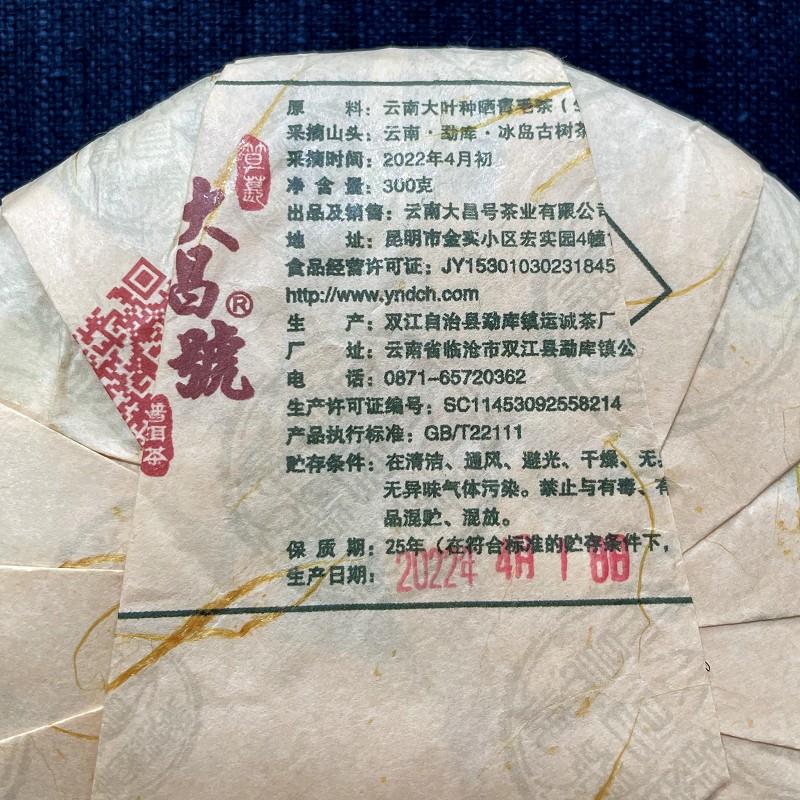 原 料：云南大叶种晒青毛茶（
采摘山头：云南·勐库·冰岛古树茶
采摘时间：2022年4月初
净 含 量：300克
出品及销售：云南大昌号茶业有限公司
地 址：昆明市金实小区宏实园4幢
食品经营许可证：JY15301030231845
http://www.yndch.com
生 产：双江自治县勐库镇运诚茶厂
厂 址：云南省临沧市双江县勐库镇公
电 话：0871-65720362
生产许可证编号：SC11453092558214
产品执行标准：GB/T22111
贮存条件：在清洁、通风、避光、干燥、无
无异味气体污染。禁止与有毒、有
品混贮、混放。
保 质 期：25年（在符合标准的贮存条件下，
生产日期：2022年 4月 1
大昌號®
普洱茶